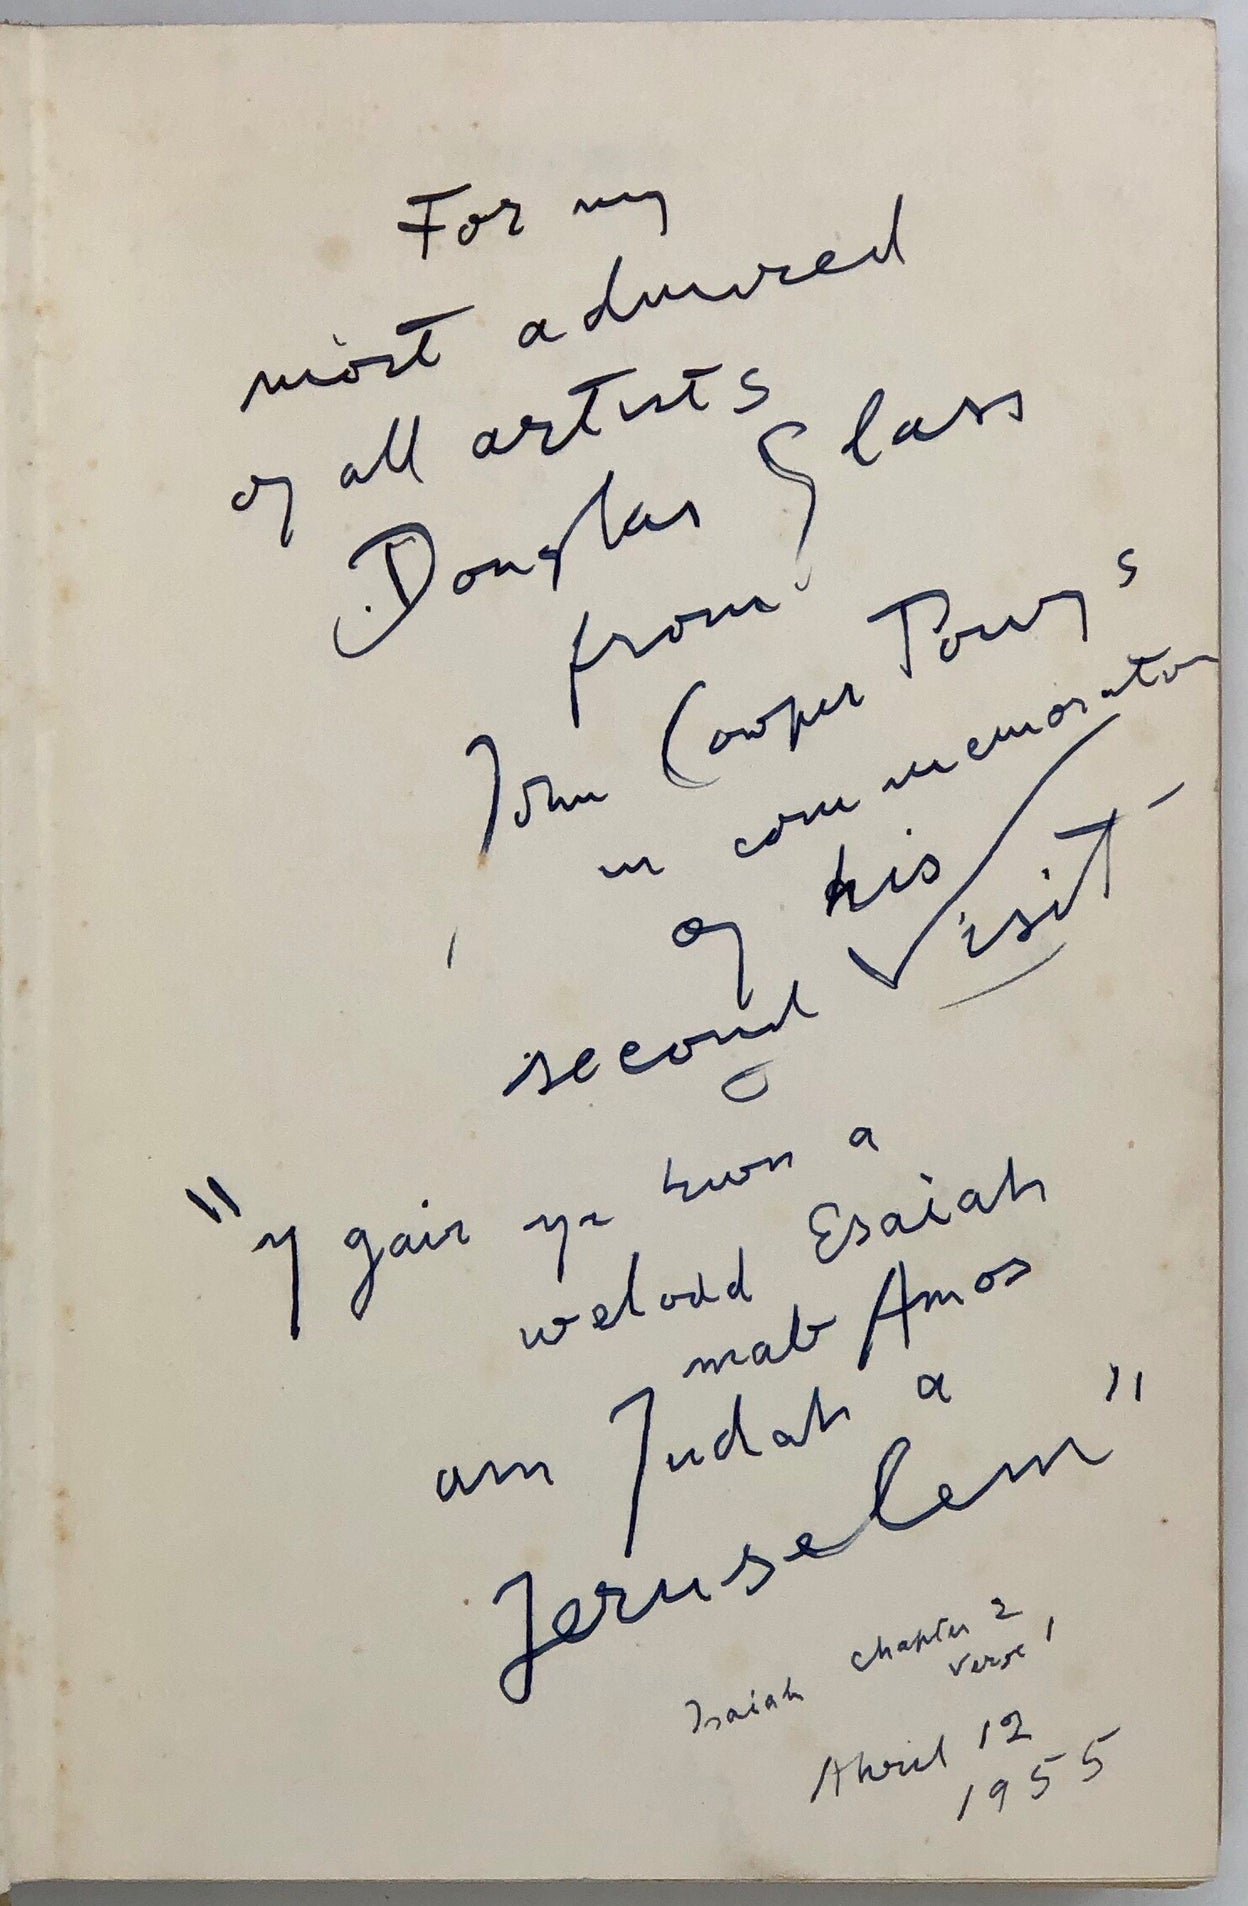 For my
most admired
of all artists
Douglas Glass
from
John Cowper Powys
in commemoration
of his
second Visit
"Y gair yr hwn a
welodd Esaiah
mab Amos
am Judah a
Jeruselem"
Isaiah chapter 2
verse 1
April 12
1955